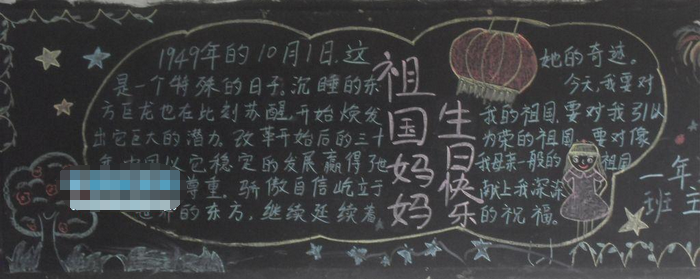 1949年的10月1日,这
是一个特殊的日子,沉睡的东
方巨龙也在此刻苏醒,开始焕发
出它巨大的潜力。改革开始后的三十
年,中国以它稳定的发展赢得
尊重,骄傲自信屹立于
的东方,继续延续着
祖国妈妈
生日快乐
她的奇迹。
今天,我要对
我的祖国,要对我引以
为荣的祖国,要对像
我母亲一般的祖国
献上我深深
的祝福。
一年
班